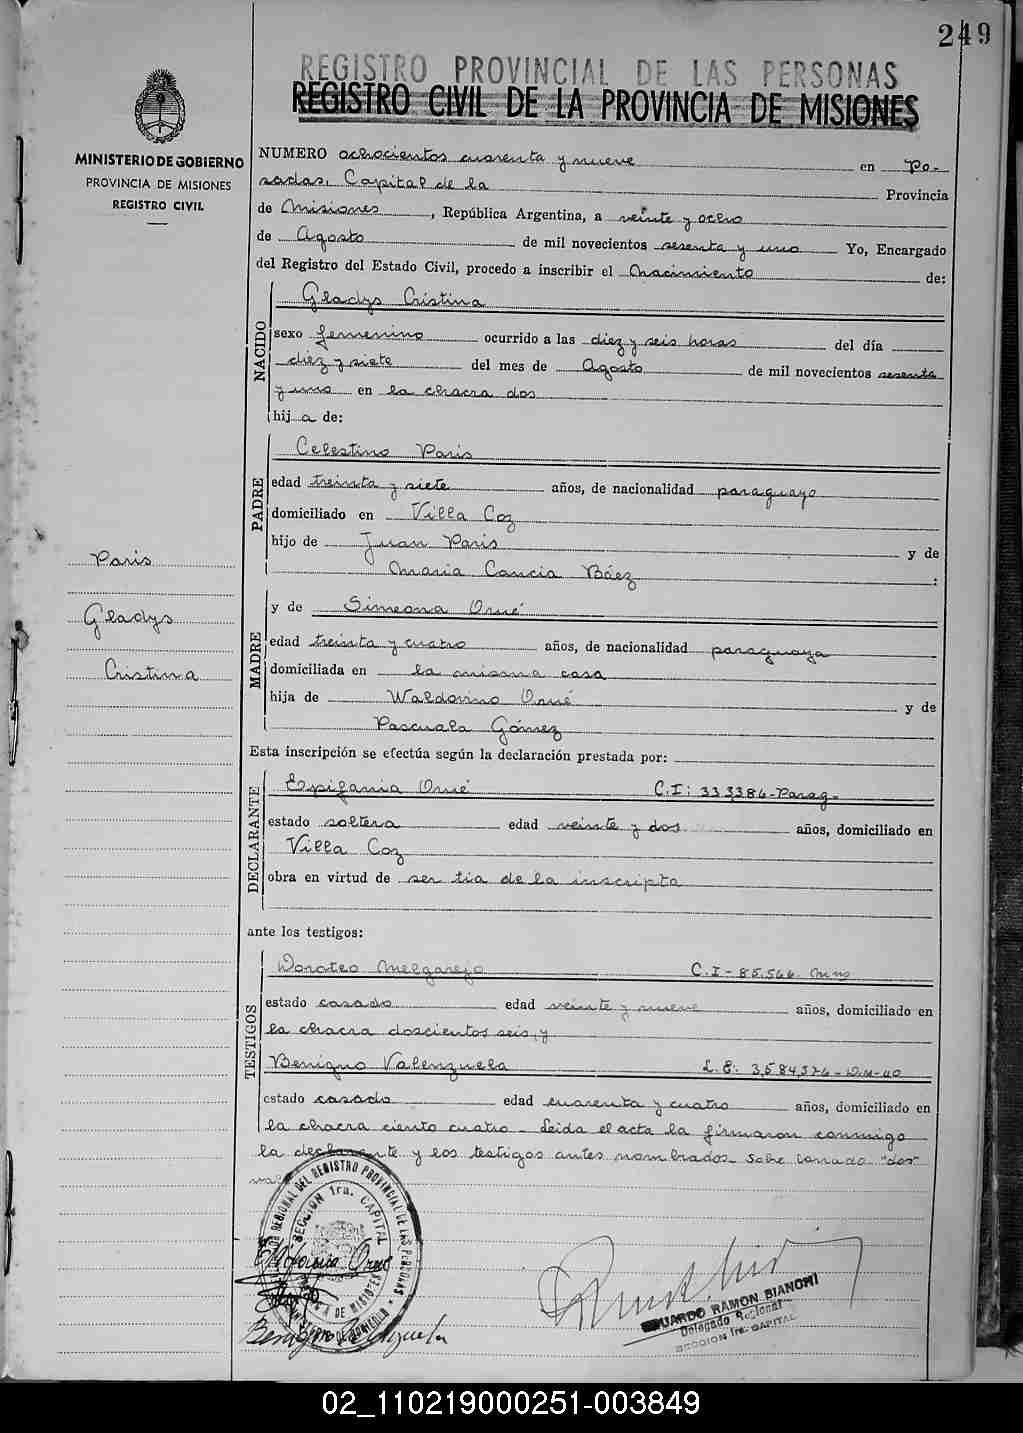 249
REGISTRO PROVINCIAL DE LAS PERSONAS
REGISTRO CIVIL DE LA PROVINCIA DE MISIONES
MINISTERIO DE GOBIERNO
PROVINCIA DE MISIONES
REGISTRO CIVIL
NUMERO ochocientos cuarenta y nueve en Po-
sadas, Capital de la Provincia
de Misiones, República Argentina, a veinte y ocho
de Agosto de mil novecientos sesenta y uno Yo, Encargado
del Registro del Estado Civil, procedo a inscribir el Nacimiento de:
NACIDO
Gladys Cristina
sexo femenino ocurrido a las diez y seis horas del día
diez y siete del mes de Agosto de mil novecientos sesenta
y uno en la chacra dos
hija de:
PADRE
Celestino Paris
edad treinta y siete años, de nacionalidad paraguayo
domiciliado en Villa Coz
hijo de Juan Paris y de
Maria Cancia Báez :
Paris
Gladys
Cristina
MADRE
y de Simeona Orué
edad treinta y cuatro años, de nacionalidad paraguaya
domiciliada en la misma casa
hija de Waldovino Orué y de
Pascuala Gómez
Esta inscripción se efectúa según la declaración prestada por:
DECLARANTE
Epifania Orué C.I: 333386-Parag-
estado soltera edad veinte y dos años, domiciliado en
Villa Coz
obra en virtud de ser tia de la inscripta
ante los testigos:
TESTIGOS
Doroteo Melgarejo C.I-85.566. Mnes
estado casado edad veinte y nueve años, domiciliado en
la chacra doscientos seis, y
Benigno Valenzuela L.E. 3,584,376-D.M-40
estado casado edad cuarenta y cuatro años, domiciliado en
la chacra ciento cuatro- Leida el acta la firmaron conmigo
la declarante y los testigos antes nombrados- Sobe borrado "dos"
SECCION 1ra. CAPITAL
REGISTRO PROVINCIAL DE LAS PERSONAS
Epifania Orué
Benigno Valenzuela
EDUARDO RAMON BIANCHI
Delegado Regional
SECCION 1ra. CAPITAL
02_110219000251-003849